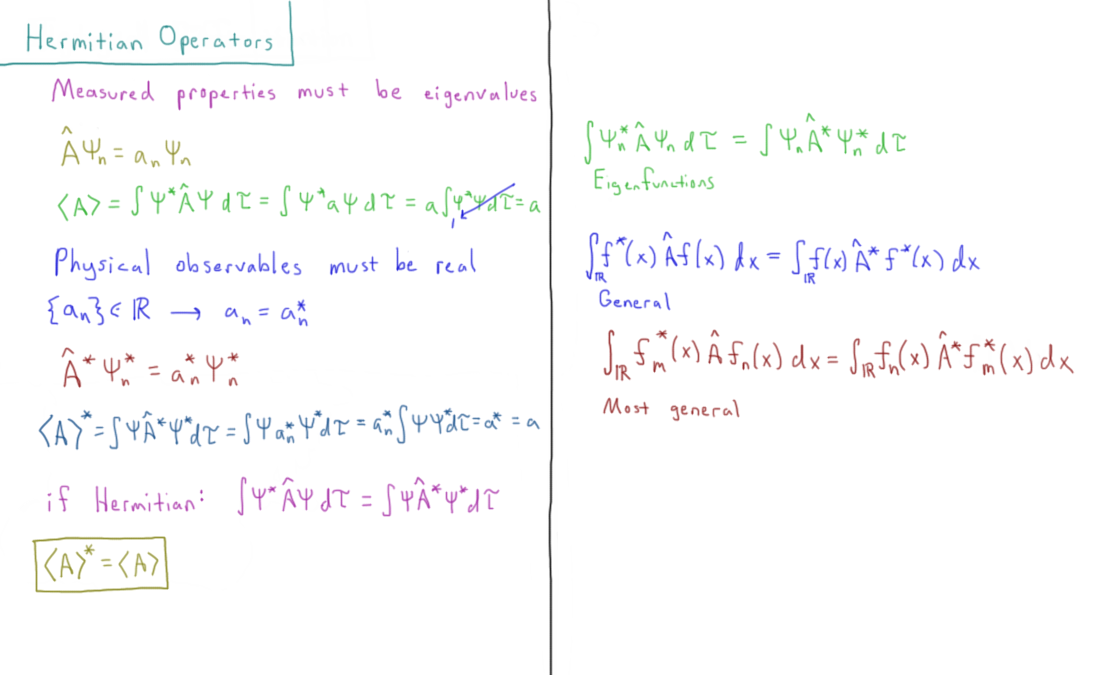 Hermitian Operators
Measured properties must be eigenvalues
Âψₙ = aₙψₙ
⟨A⟩ = ∫ψ*Âψ dτ = ∫ψ*aψ dτ = a∫ψ*ψdτ = a
1
Physical observables must be real
{aₙ} ∈ ℝ → aₙ = aₙ*
Â*ψₙ* = aₙ*ψₙ*
⟨A⟩* = ∫ψÂ*ψ*dτ = ∫ψaₙ*ψ*dτ = aₙ*∫ψψ*dτ = a* = a
if Hermitian: ∫ψ*Âψ dτ = ∫ψÂ*ψ*dτ
⟨A⟩* = ⟨A⟩
∫ψₙ*Âψₙ dτ = ∫ψₙÂ*ψₙ* dτ
Eigenfunctions
∫_ℝ f*(x) Âf(x) dx = ∫_ℝ f(x) Â* f*(x) dx
General
∫_ℝ fₘ*(x) Â fₙ(x) dx = ∫_ℝ fₙ(x) Â* fₘ*(x) dx
Most general